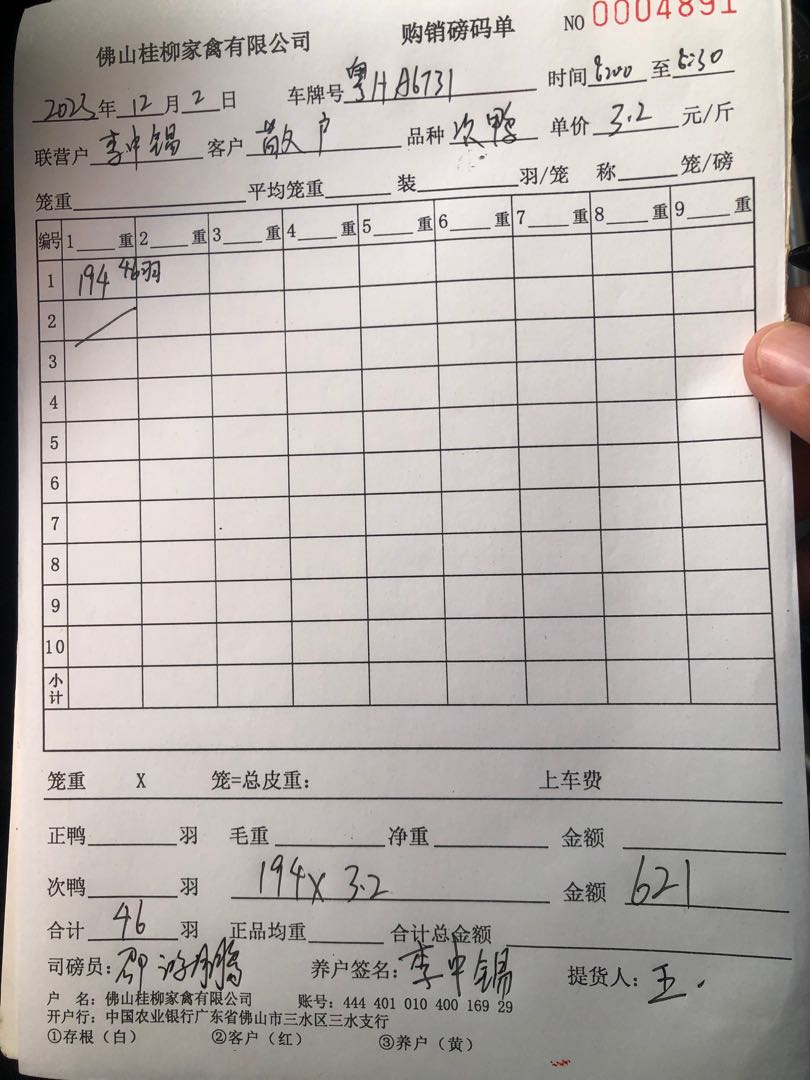 佛山桂柳家禽有限公司 购销磅码单 NO 0004891
2023年12月2日 车牌号粤HA6731 时间8:00至8:30
联营户 李中锡 客户 散户 品种 次鸭 单价 3.2 元/斤
笼重 平均笼重 装 羽/笼 称 笼/磅
编号 1 重 2 重 3 重 4 重 5 重 6 重 7 重 8 重 9 重
1 194 46羽
2
3
4
5
6
7
8
9
10
小计
笼重 X 笼=总皮重: 上车费
正鸭 羽 毛重 净重 金额
次鸭 羽 194x3.2 金额 621
合计 46 羽 正品均重 合计总金额
司磅员: 养户签名: 李中锡 提货人: 王.
户 名: 佛山桂柳家禽有限公司 账号: 444 401 010 400 169 29
开户行: 中国农业银行广东省佛山市三水区三水支行
①存根(白) ②客户(红) ③养户(黄)